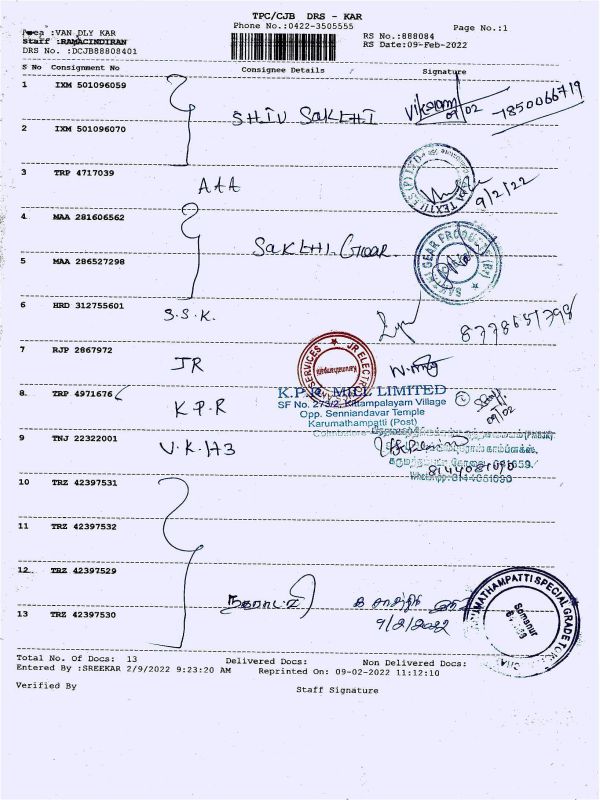 TPC/CJB DRS - KAR
Area :VAN DLY KAR
Phone No.:0422-3505555
Page No.:1
staff :RAMACINDIRAN
RS No.:888084
DRS No. :DCJB88808401
RS Date:09-Feb-2022
S No Consignment No Consignee Details Signature
1 IXM 501096059
SHIV SAKTHI 09/02 1850066719
2 IXM 501096070
3 TRP 4717039
AAA 9/2/22
4 MAA 281606562
SAKTHI Gear
5 MAA 286527298
6 HRD 312755601
S.S.K. 8778651798
7 RJP 2867972
JR
8. TRP 4971676
K.P.R
K.P.R. MILL LIMITED
SF No. 273/2, Kittampalayam Village
Opp. Senniandavar Temple
Karumathampatti (Post)
09/02
9 TNJ 22322001
V.K.H3
10 TRZ 42397531
11 TRZ 42397532
12 TRZ 42397529
13 TRZ 42397530
9/2/2022
Total No. Of Docs: 13 Delivered Docs: Non Delivered Docs:
Entered By :SREEKAR 2/9/2022 9:23:20 AM Reprinted On: 09-02-2022 11:12:10
Verified By Staff Signature